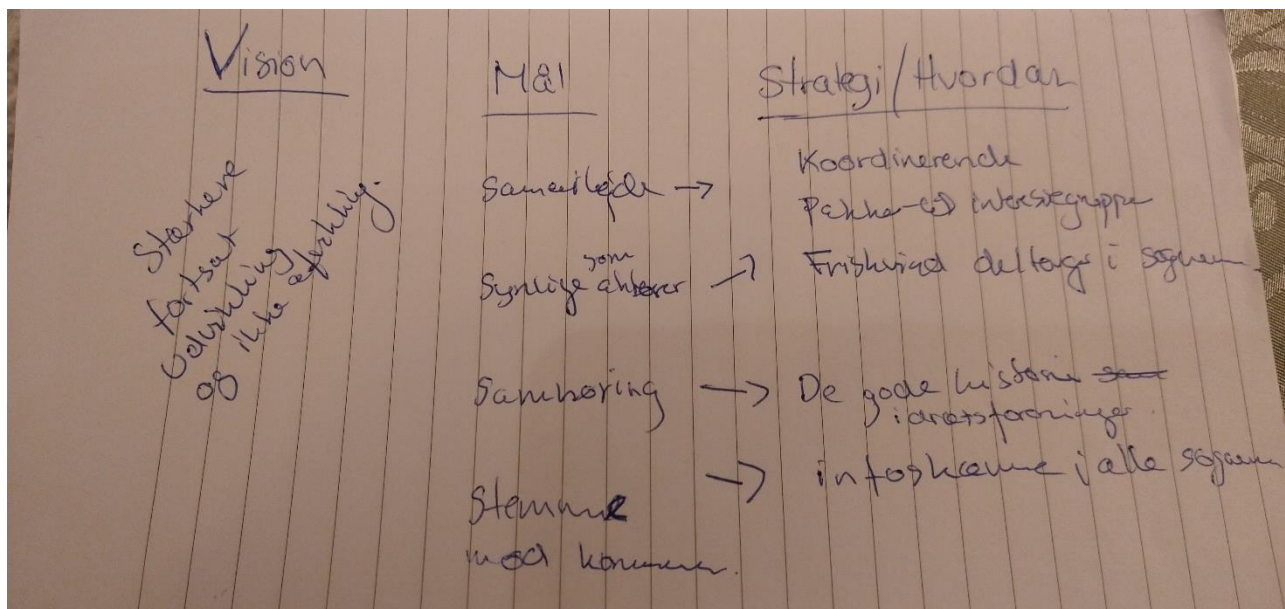 Vision
Stærkere
fortsat
udvikling
og ikke afvikling.
Mål
Samarbejde →
Synlige som aktører →
Samhøring →
Stemme
mod kommunen.
Strategi/Hvordan
Koordinerende
Pakke-ud interessegruppe
Friskvind deltager i sognene
De gode historier
idrætsforeninger.
→ infoskærme i alle sognene